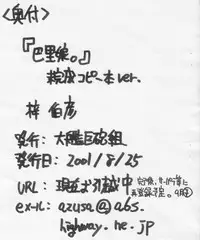 <奥付>
『巴里編。』
粽版コピー本ver.
梓 伯彦
発行:大艦巨砲組
発行日:2001/8/25
URL:現在お引越中
eメール:azusa@abs.
highway.ne.jp